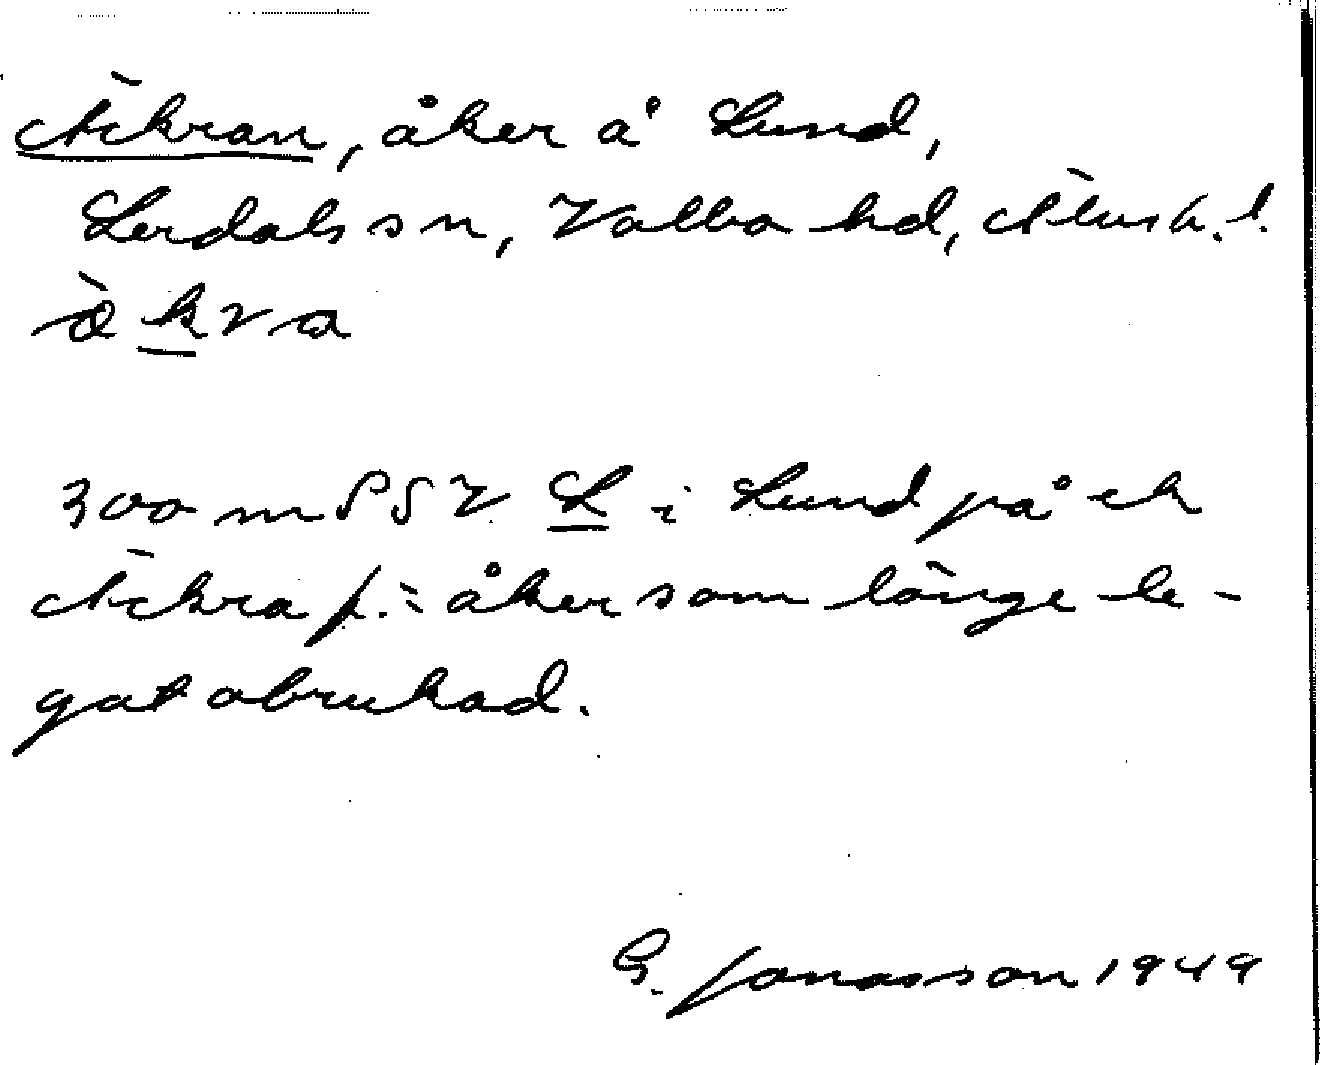 Äckran, åker å Lund,
Lerdals sn, Valbo hd, Älvsb. l.
æ̀ k r a
300 m SSV L i Lund på ek
Äckra f.: åker som länge le-
gat obrukad.
G. Jonasson 1949